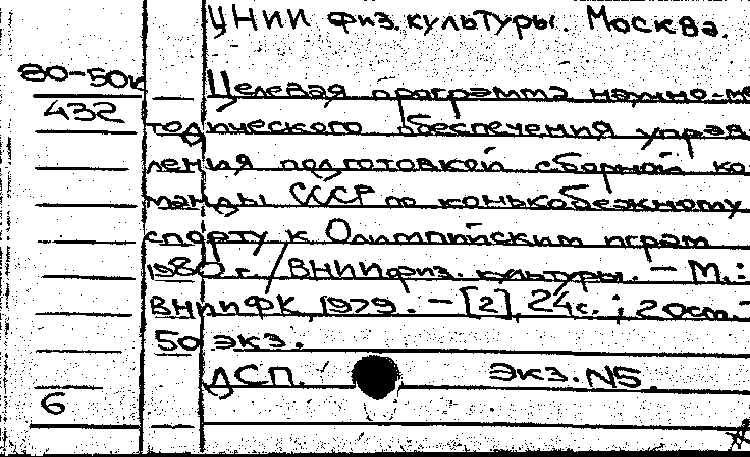 ЦНИИ физ. культуры. Москва.
80-50к
Целевая программа научно-ме
432
тодического обеспечения управ
ления подготовкой сборной ко
манды СССР по конькобежному
спорту к Олимпийским играм
1980 г. / ВНИИ физ. культуры. — М.:
ВНИИФК, 1979. — [2], 24с. ; 20см.-
50 экз.
ДСП. Экз. N5.
6